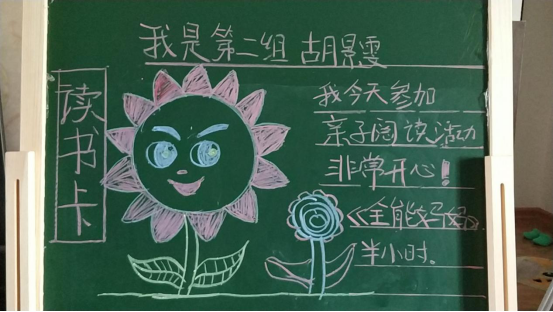 我是第二组 胡景雯
读书卡
我今天参加
亲子阅读活动
非常开心!
《全能好妈妈》
半小时.